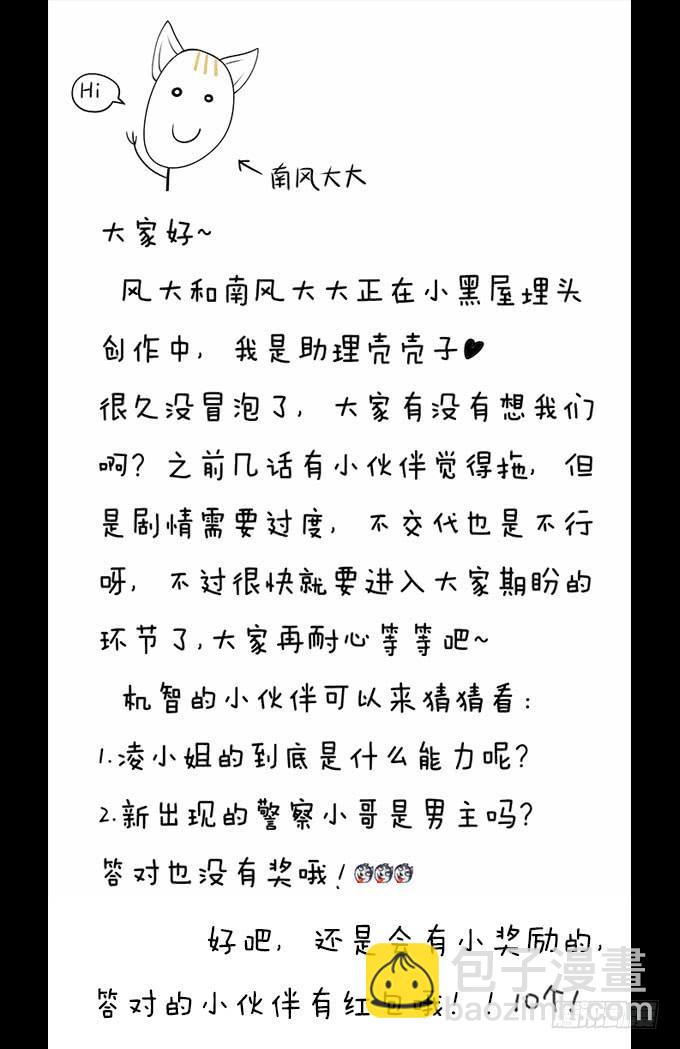 Hi
南风大大
大家好~
风大和南风大大正在小黑屋埋头
创作中，我是助理壳壳子♥
很久没冒泡了，大家有没有想我们
啊？之前几话有小伙伴觉得拖，但
是剧情需要过度，不交代也是不行
呀，不过很快就要进入大家期盼的
环节了，大家再耐心等等吧~
机智的小伙伴可以来猜猜看：
1.凌小姐的到底是什么能力呢？
2.新出现的警察小哥是男主吗？
答对也没有奖哦！
好吧，还是会有小奖励的，
答对的小伙伴有红包哦！！10个！
包子漫畫
baozimh.com